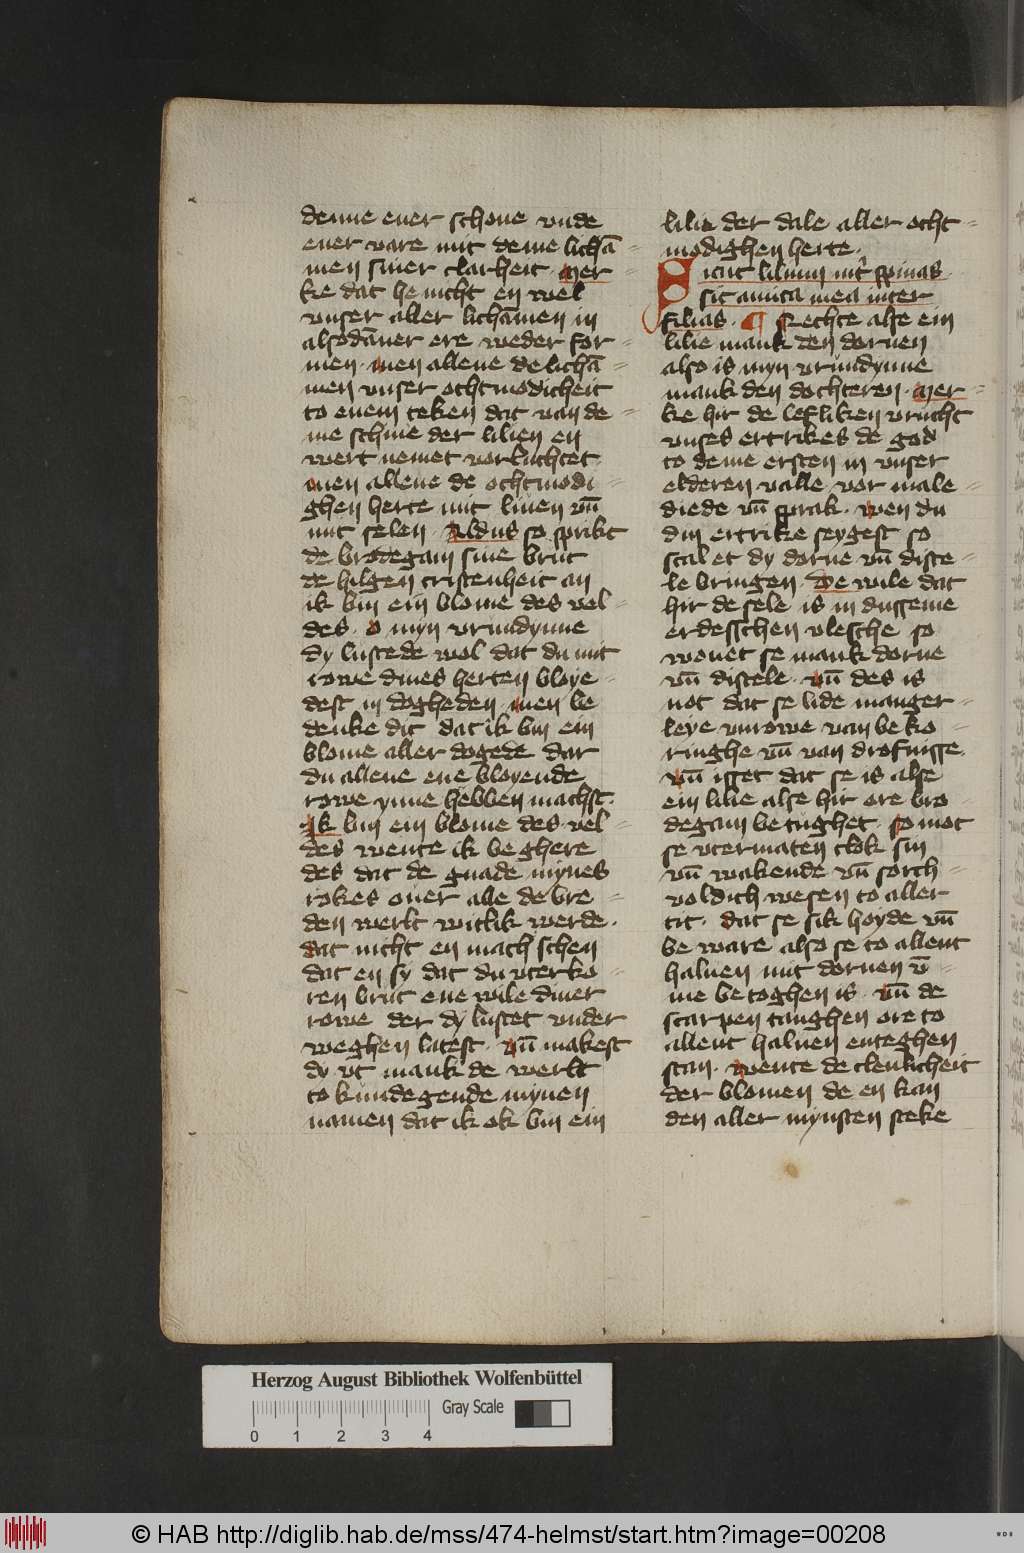 denne ener schone vnde
ener vare mit deme lichā
men siner clarheit · Mer
ke dat he nicht en wel
vnser aller lichamen in
alsodaner ere weder for
men · Men allene de lichā
men vnser othmodicheit
to enem teken dat van de
me schine der lilien en
wert nemet vorluchtet
Men allene de othmodi
ghen herte mit liuen vn̄
mit selen · Aldus so sprikt
de brodegam sine brut
de hilgen cristenheit an
ik bin ein blome des vel
des · O myn vrundynne
dy lustede wol dat du mit
rowe dines herten bloye
dest in dogheden · Men be
denke dit dat ik bin ein
blome aller dogede dar
du allene ene bloyende
rowe ynne hebben machst ·
Ik bin ein blome des vel
des wente ik beghere
des dat de gnade mynes
rokes ouer alle de bre
den werlt witlik werde ·
dat nicht en mach schen
dat en sy dat du vterko
ren brut ene wile diner
rowe der dy lustet vnder
weghen latest · vn̄ makest
dy vt mank de werlt
to kundegende mynen
namen dat ik ok bin ein
lilie der dale aller ocht
modighen herte ·
Sicut lilium int͛ spinas
sic amica mea inter
filias · ¶ Rechte alse ein
lilie mank den dornen
also is myn vrundynne
mank den dochteren · Mer
ke hir de lefliken vrucht
vnses ertrikes de god
to deme ersten in vnser
elderen valle vor male
diede vn̄ sprak · Wen du
din ertrike seygest so
scal et dy dorne vn̄ diste
le bringen · De wile dat
hir de sele is in dusseme
erdesschen vlesche so
wonet se mank dorne
vn̄ distele · vn̄ des is
not dat se lide manger
leye vnrowe van beko
ringhe vn̄ van drofnisse ·
vn̄ isset dat se is alse
ein lilie alse hir ore bro
degam betughet · so mot
se vtermaten clok sin
vn̄ wakende vn̄ sorch
voldich wesen to aller
tit · dat se sik hoyde vn̄
be ware also se to allent
haluen mit dornen v̄
me betoghen is · vn̄ de
scarpen tanghen ore to
allent haluen enteghen
stan · Wente de clenlicheit
der blomen de en kan
den aller mynsten steke
Herzog August Bibliothek Wolfenbüttel
Gray Scale
0 1 2 3 4
© HAB http://diglib.hab.de/mss/474-helmst/start.htm?image=00208
WDB